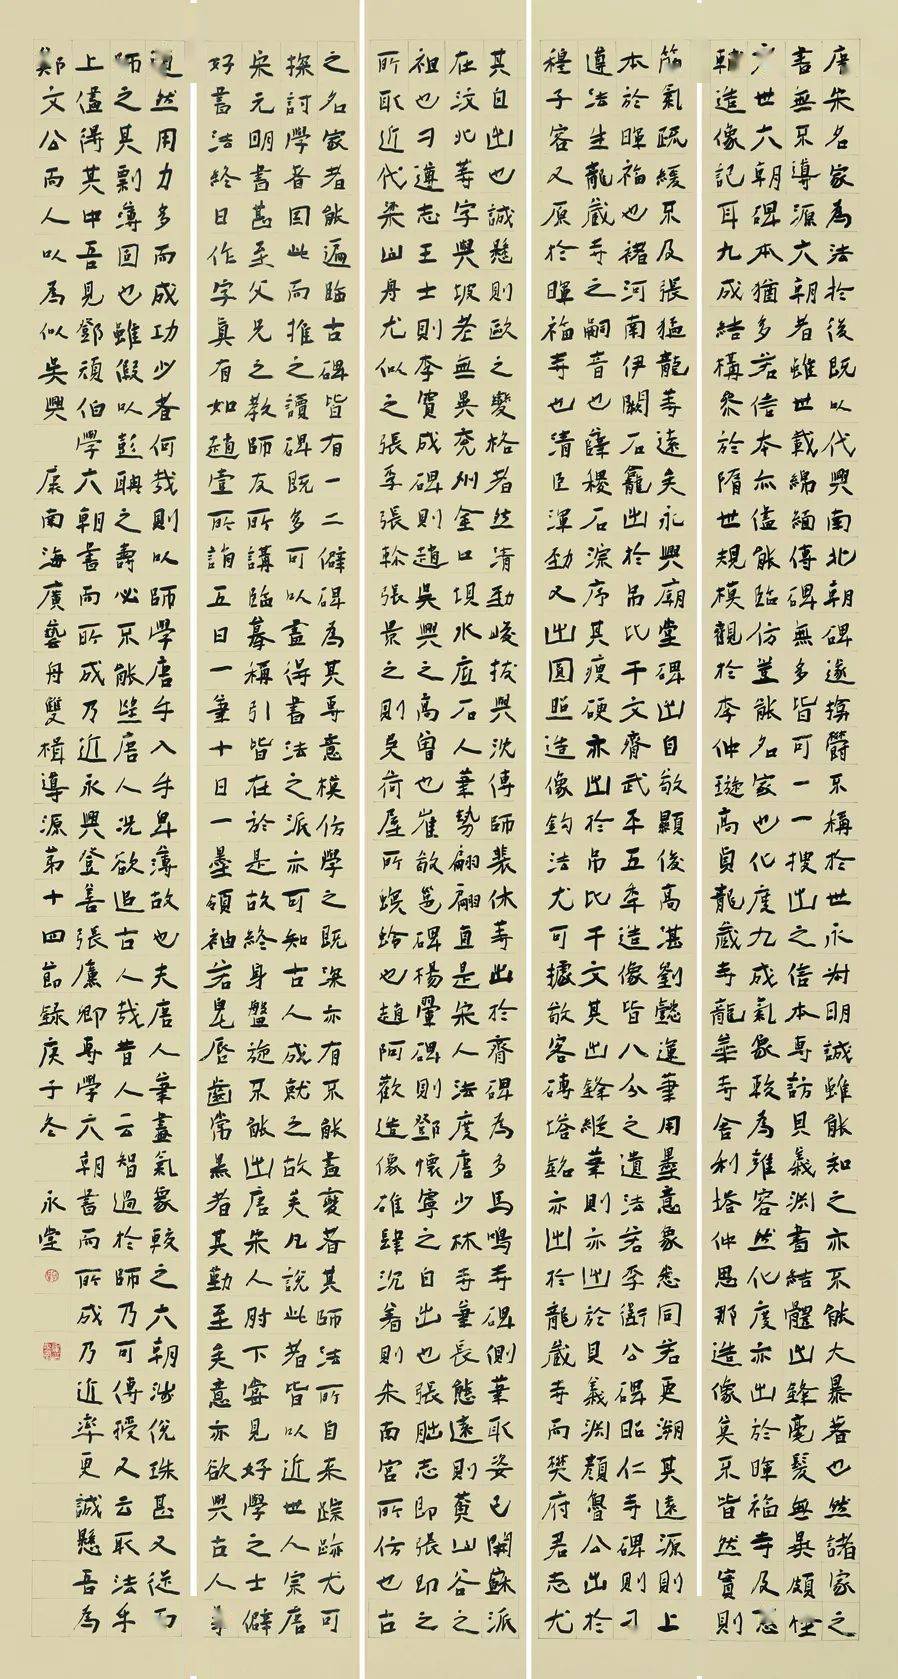 唐宋名家為法於後既以代興南北朝碑遂揜鬱不稱於世永叔明誠雖能知之亦不能大暴著也然諸家之
書無不導源六朝者雖世載綿緬傳碑無多皆可一一搜出之信本專訪貝義淵書結體出鋒毫髮無異頗怪
世六朝碑本猶多若信本亦儘能臨仿豈能名家也化度九成氣象較為雍容然化度亦出於暉福寺及惠
輔造像記耳九成結構參於隋世規模覩於李仲璇高貞龍藏寺龍華寺舍利塔仲思那造像莫不皆然實則
簡氣疏緩不及張猛龍等遠矣永興廟堂碑出自敬顯儁高湛劉懿運筆用墨意象悉同若更溯其遠源則上
本於暉福也褚河南伊闕石龕出於吊比干文齊武平五年造像皆八分之遺法若李衛公碑昭仁寺碑則刁
遵法生龍藏寺之嗣音也薛稷石淙序其瘦硬亦出於吊比干文其出鋒縱筆則亦出於貝義淵顏魯公出於
穆子容又原於暉福寺也清臣渾勁又出圓照造像鈎法尤可據敬客磚塔銘亦出於龍藏寺而樊府君志尤
其自出也誠懸則歐之變格者然清勁峻拔與沈傳師裴休等出於齊碑為多馬鳴寺碑側筆取姿已開蘇派
在汶北等字與坡老無異兗州金口埧水底石人筆勢翩翩直是宋人法度唐少林寺筆長態遠則黃山谷之
祖也刁遵志王士則李寳成碑則趙吳興之高曾也崔敬邕碑楊翬碑則鄧懷寧之自出也張朏志即張即之
所取近代梁山舟尤似之張孚張軫張景之則吳荷屋所螟蛉也趙阿歡造像碓肆沉着則朱南宮所仿也古
之名家者能遍臨古碑皆有一二僻碑為其專意模仿學之既深亦有不能盡變者其師法所自來踪跡尤可
探討學者因此而推之讀碑既多可以盡得書法之派亦可知古人成就之故矣凡說此者皆以近世人宗唐
宋元明書甚至父兄之教師友所講臨摹稱引皆在於是故終身盤旋不能出唐宋人肘下嘗見好學之士僻
好書法終日作字真有如趙壹所誚五日一筆十日一墨領袖若皂唇齒常黑者其勤至矣意亦欲與古人爭
然用力多而成功少者何哉則以師學唐手入手卑薄故也夫唐人筆畫氣象較之六朝淺俗殊甚又從而
師之其剽薄固也雖假以彭聃之壽必不能望唐人況欲追古人哉昔人云智過於師乃可傳授又云取法乎
上僅得其中吾見鄧頑伯學六朝書而所成乃近永興登善張廉卿專學六朝書而所成乃近率更誠懸吾為
鄭文公而人以為似吳興 康南海廣藝舟雙楫導源第十四節錄庚子冬 永堂